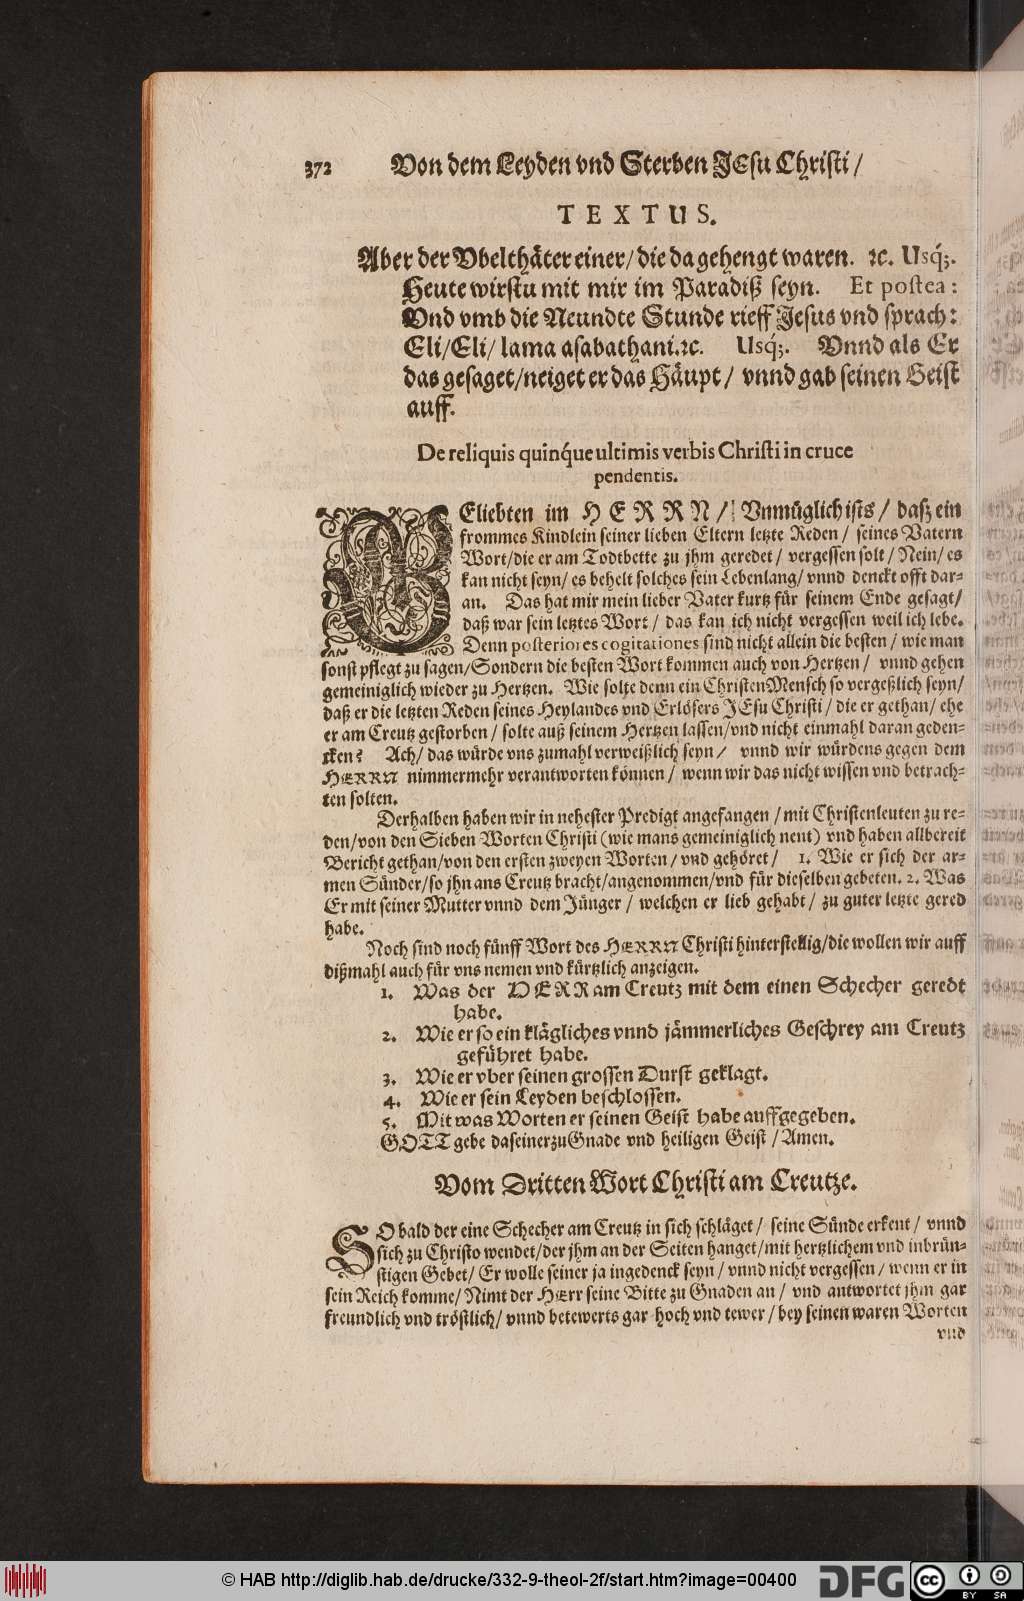 372 Von dem Leyden vnd Sterben JEsu Christi /
TEXTUS.
Aber der Vbelthäter einer / die da gehengt waren. ꝛc. Usq́;.
Heute wirstu mit mir im Paradiß seyn. Et postea:
Vnd vmb die Neundte Stunde rieff Jesus vnd sprach:
Eli/Eli/ lama asabathani.ꝛc. Usq́;. Vnnd als Er
das gesaget/neiget er das Häupt / vnnd gab seinen Geist
auff.
De reliquis quinq́ue ultimis verbis Christi in cruce
pendentis.
GEliebten im HERRN / Vnmüglich ists / daß ein
frommes Kindlein seiner lieben Eltern letzte Reden / seines Vatern
Wort/die er am Todtbette zu jhm geredet / vergessen solt / Nein/ es
kan nicht seyn/ es behelt solches sein Lebenlang/ vnnd denckt offt dar-
an. Das hat mir mein lieber Vater kurtz für seinem Ende gesagt/
daß war sein letztes Wort / das kan ich nicht vergessen weil ich lebe.
Denn posteriores cogitationes sind nicht allein die besten / wie man
sonst pflegt zu sagen/Sondern die besten Wort kommen auch von Hertzen / vnnd gehen
gemeiniglich wieder zu Hertzen. Wie solte denn ein ChristenMensch so vergeßlich seyn/
daß er die letzten Reden seines Heylandes vnd Erlösers JEsu Christi / die er gethan/ ehe
er am Creutz gestorben / solte auß seinem Hertzen lassen/vnd nicht einmahl daran geden-
cken? Ach/ das würde vns zumahl verweißlich seyn / vnnd wir würdens gegen dem
HERRN nimmermehr verantworten können / wenn wir das nicht wissen vnd betrach-
ten solten.
Derhalben haben wir in nehester Predigt angefangen / mit Christenleuten zu re-
den/von den Sieben Worten Christi (wie mans gemeiniglich nent) vnd haben allbereit
Bericht gethan/von den ersten zweyen Worten / vnd gehöret / 1. Wie er sich der ar-
men Sünder/so jhn ans Creutz bracht/angenommen/vnd für dieselben gebeten. 2. Was
Er mit seiner Mutter vnnd dem Jünger / welchen er lieb gehabt / zu guter letzte gered
habe.
Noch sind noch fünff Wort des HERRN Christi hinterstellig/die wollen wir auff
dißmahl auch für vns nemen vnd kürtzlich anzeigen.
1. Was der HERR am Creutz mit dem einen Schecher geredt
habe.
2. Wie er so ein klägliches vnnd jämmerliches Geschrey am Creutz
geführet habe.
3. Wie er vber seinen grossen Durst geklagt.
4. Wie er sein Leyden beschlossen.
5. Mit was Worten er seinen Geist habe auffgegeben.
GOTT gebe da seiner zu Gnade vnd heiligen Geist / Amen.
Vom Dritten Wort Christi am Creutze.
SO bald der eine Schecher am Creutz in sich schläget / seine Sünde erkent / vnnd
sich zu Christo wendet/der jhm an der Seiten hanget/mit hertzlichem vnd inbrün-
stigen Gebet/ Er wolle seiner ja ingedenck seyn / vnnd nicht vergessen / wenn er in
sein Reich komme/ Nimt der HErr seine Bitte zu Gnaden an / vnd antwortet jhm gar
freundlich vnd tröstlich/ vnnd betewerts gar hoch vnd tewer / bey seinen waren Worten
vnd
© HAB http://diglib.hab.de/drucke/332-9-theol-2f/start.htm?image=00400
DFG
cc BY SA